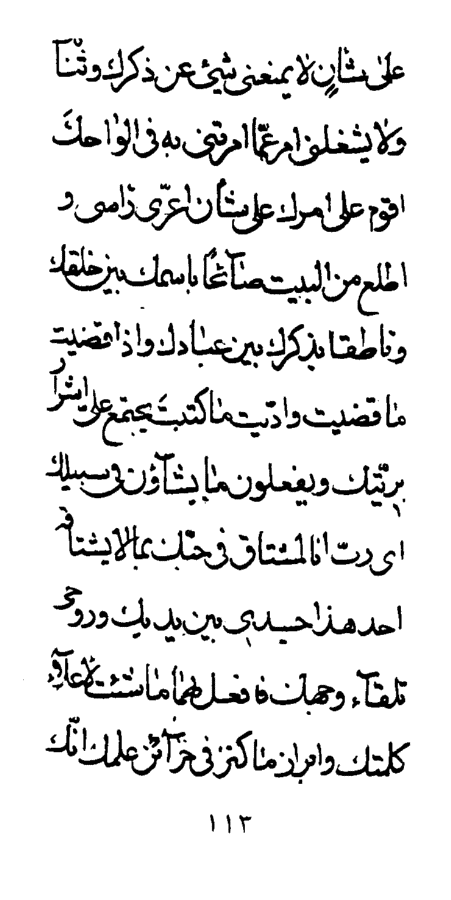 على شأنٍ لا يمنعنى شيئ عن ذكرك وثنآ
ولا يشغلنى امر عمّا امرتنى به فى الواحك
اقوم على امرك على شأن اعرّى رأسى و
اطلع من البيت صآئحًا باسمك بين خلقك
وناطقا بذكرك بين عبادك واذا قضيت
ما قضيت وادّيت ما كتبت يجتمع علىّ اشرار
بريّتك ويفعلون ما يشآؤن فى سبيلك
اى ربّ انا المشتاق فى حبّك بما لا يشتاقه
احد هذا جسدى بين يديك وروحى
تلقآء وجهك فافعل بهما ما شئت لاعلآء
كلمتك وابراز ما كنز فى خزآئن علمك انّك
١١٣